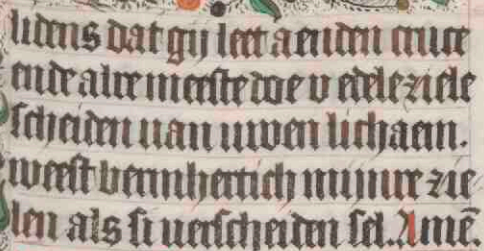 lidens dat gij leet aenden cruce
ende alre meeste doe v edele ziele
scheiden uan uwen lichaem.
weest bermhertich mijnre zie
len als si uerscheiden sel. Amē